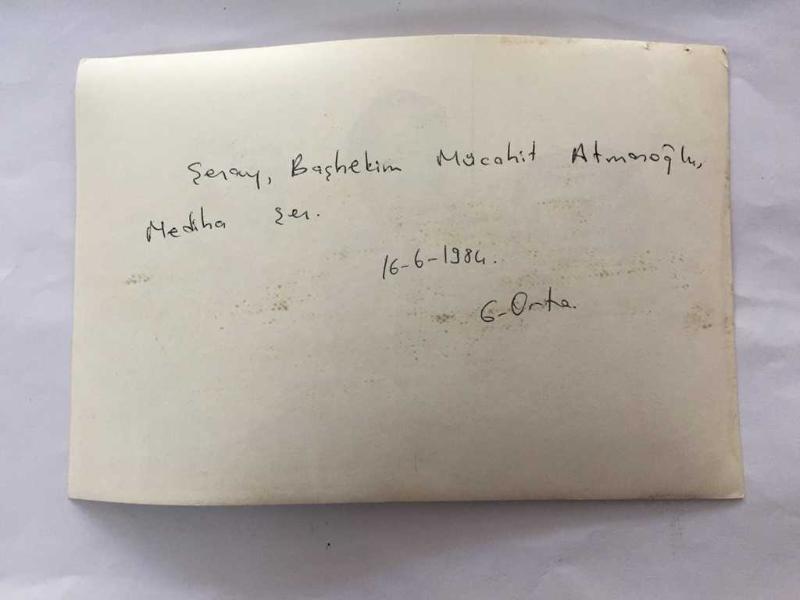 Şeray, Başhekim Mücahit Atmaroğlu,
Mediha Şer.
16-6-1984.
G-Orta.